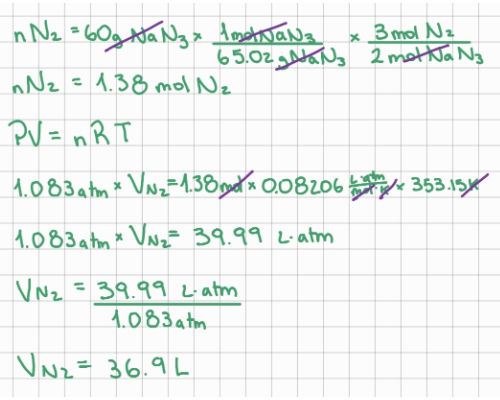 nN₂ = 60g NaN₃ × 1molNaN₃/65.02 gNaN₃ × 3mol N₂/2molNaN₃
nN₂ = 1.38 mol N₂
PV = nRT
1.083atm × V_N₂ = 1.38mol × 0.08206 L·atm/mol·K × 353.15K
1.083atm × V_N₂ = 39.99 L·atm
V_N₂ = 39.99 L·atm/1.083atm
V_N₂ = 36.9 L